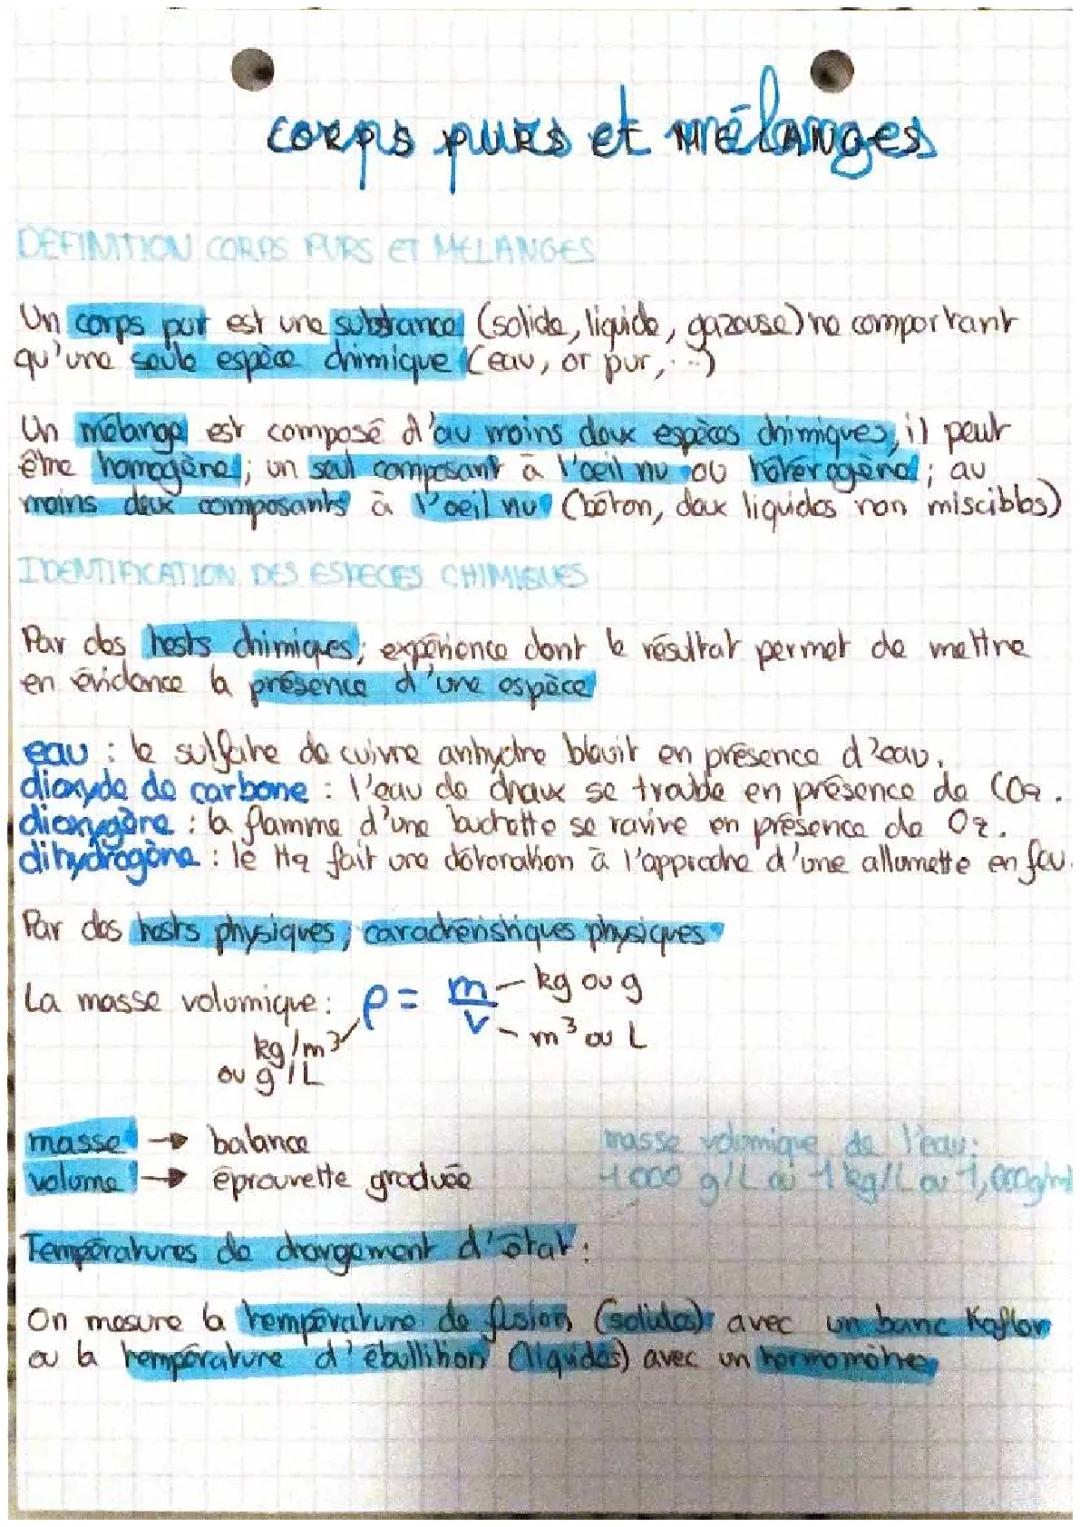 corps purs et MÉLANGES
DEFINITION CORPS PURS ET MELANGES
Un corps pur est une substance (solide, liquide, gazeuse) ne comportant
qu'une seule espèce chimique (eau, or pur, ...)
Un mélange est composé d'au moins deux espèces chimiques, il peut
être homogène ; un seul composant à l'oeil nu ou hétérogène ; au
moins deux composants à l'oeil nu (béton, deux liquides non miscibles)
IDENTIFICATION DES ESPECES CHIMIQUES
Par des tests chimiques ; expérience dont le résultat permet de mettre
en évidence la présence d'une espèce
eau : le sulfate de cuivre anhydre bleuit en présence d'eau.
dioxyde de carbone : l'eau de chaux se trouble en présence de CO2.
dioxygène : la flamme d'une buchette se ravive en présence de O2.
dihydrogène : le H2 fait une détonation à l'approche d'une allumette en feu.
Par des tests physiques ; caractéristiques physiques
La masse volumique : ρ = m/v - kg ou g
- m³ ou L
kg/m³
ou g/L
masse → balance
volume → éprouvette graduée
masse volumique de l'eau :
1000 g/L ou 1 kg/L ou 1,000g/ml
Températures de changement d'état :
On mesure la température de fusion (solides) avec un banc Kofler
ou la température d'ébullition (liquides) avec un termomètre